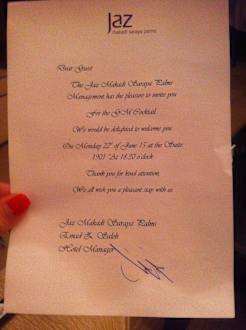 Jaz
makadi saraya palms
Dear Guest
The Jaz Makadi Saraya Palms
Management has the pleasure to invite you
For the G.M Cocktail
We would be delighted to welcome you
On Monday 22nd of June 15 at the Suite
1901 "At 18:30 o'clock
Thank you for kind attention,
We all wish you a pleasant stay with us
Jaz Makadi Saraya Palms
Emad Z. Saleh
Hotel Manager